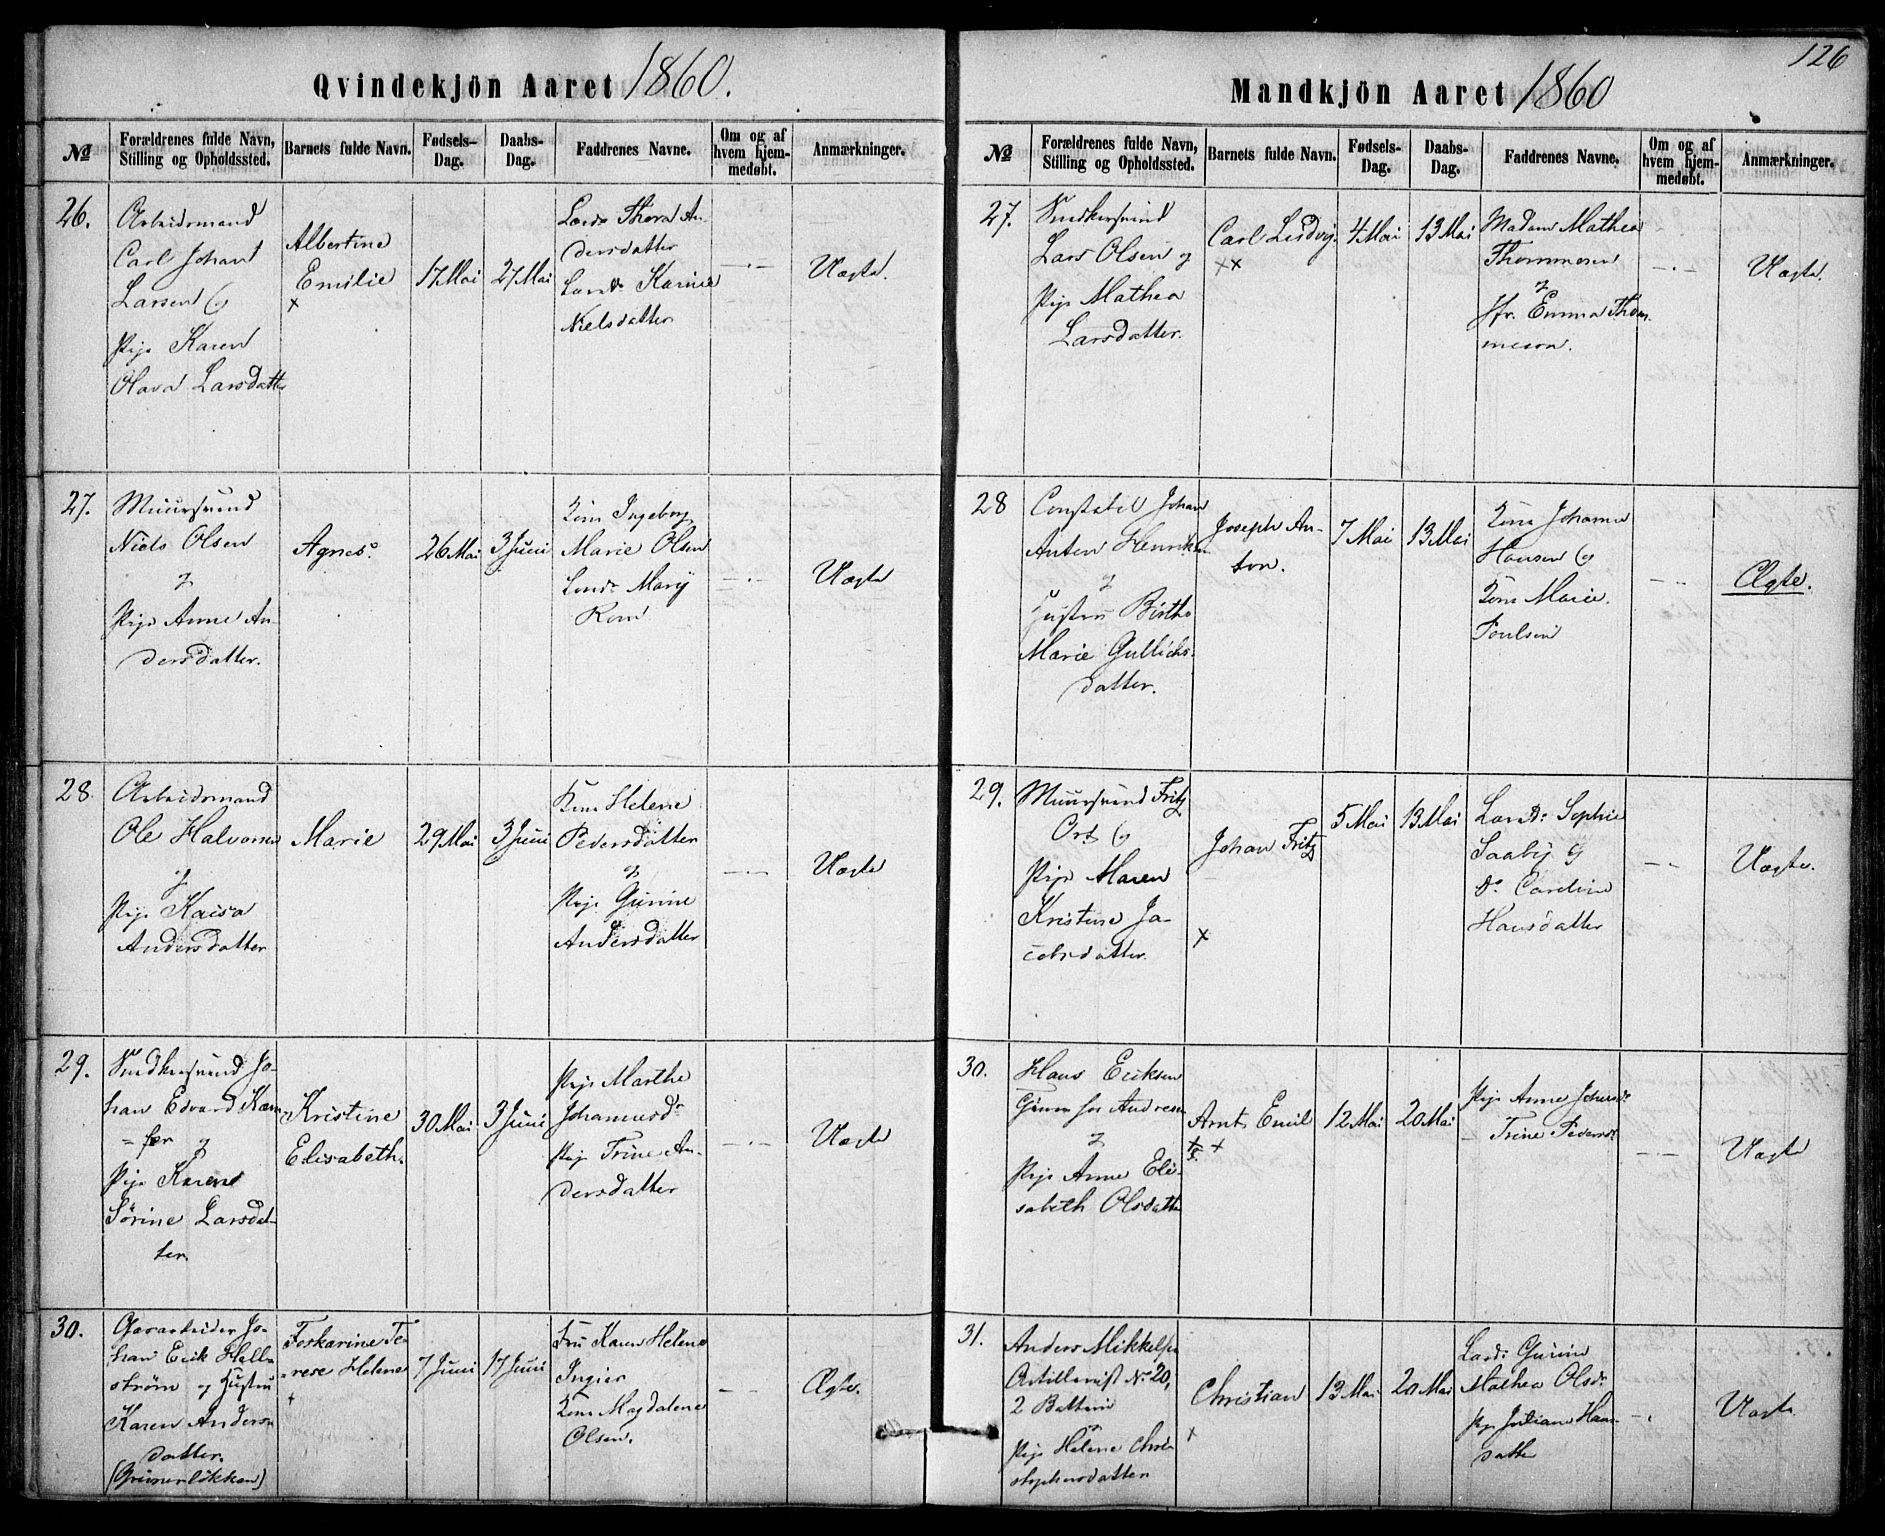 126
Qvindekjön Aaret 1860.
№
Forældrenes fulde Navn,
Stilling og Opholdssted.
Barnets fulde Navn.
Fødsels-
Dag.
Daabs-
Dag.
Faddrenes Navne.
Om og af
hvem hjem-
medøbt.
Anmærkninger.
26.
Arbeidsmand
Carl Johan
Larsen og
Pige Karen
Olava Larsdatter
Albertine
Emilie
×
17 Mai
27 Mai
Thora An-
dersdatter
Karine
Nielsdatter
— · —
Uægte.
27.
Muursvend
Niels Olsen
og
Pige Anne An-
dersdatter.
Agnes
26 Mai
3 Juni
Kone Ingeborg
Marie Olsen
Mary
— · —
Uægte
28.
Arbeidsmand
Ole Halvorsen
og
Pige Kaisa
Andersdatter
Marie
29 Mai
3 Juni
Kone Helene
Pedersdatter
og
Pige Gurine
Andersdatter
— · —
Uægte
29.
Snedkersvend Jo-
han Edvard
og
Pige Karen
Sørine Larsdat-
ter.
Kristine
Elisabeth.
30 Mai
3 Juni
Pige Marthe
Johannesdr
Pige Trine An-
dersdatter
— · —
Uægte
30.
Jo-
han Erik Hell-
strøm og Hustru
Karen Anders-
datter.
(Grünerløkken)
Te-
rese Helene
+
7 Juni
17 Juni
Fru Karen Helene
Ingier
Kone Magdalene
Olsen.
— —
Ægte.
Mandkjön Aaret 1860
№
Forældrenes fulde Navn,
Stilling og Opholdssted.
Barnets fulde Navn.
Fødsels-
Dag.
Daabs-
Dag.
Faddrenes Navne.
Om og af
hvem hjem-
medøbt.
Anmærkninger.
27.
Snedkersvend
Lars Olsen og
Pige Mathea
Larsdatter.
Carl Ludvig.
××
4 Mai
13 Mai
Madam Mathea
Thommesen
og
Jfr. Emma Thom-
mesen.
— · —
Uægte.
28
Constabel Johan
Anton Henriksen
og
Hustru Birthe
Marie Gullichs-
datter.
Joseph An-
ton.
7 Mai
13 Mai
Kone Johanne
Hansen og
Kone Marie
Poulsen
— —
Ægte.
29.
Muursvend Fritz
og
Pige Maren
Kristine Ja-
cobsdatter.
Johan Fritz
×
5 Mai
13 Mai
Sophie
Saaby og
Do Caroline
Hansdatter
— —
Uægte.
30.
Hans Eriksen
og
Pige Anne Eli-
sabeth Olsdatter
Arnt Emil
12 Mai
20 Mai
Pige Anne
Trine Pedersdr
— —
Uægte
31.
Anders Mikkelsen
Artillerist No 20,
2 Batteri
og
Pige Helene Chri-
stophersdatter
Christian
×
13 Mai
20 Mai
Gurine
Mathea Olsdr
Pige Juliane Hans-
datter
— .
Uægte.